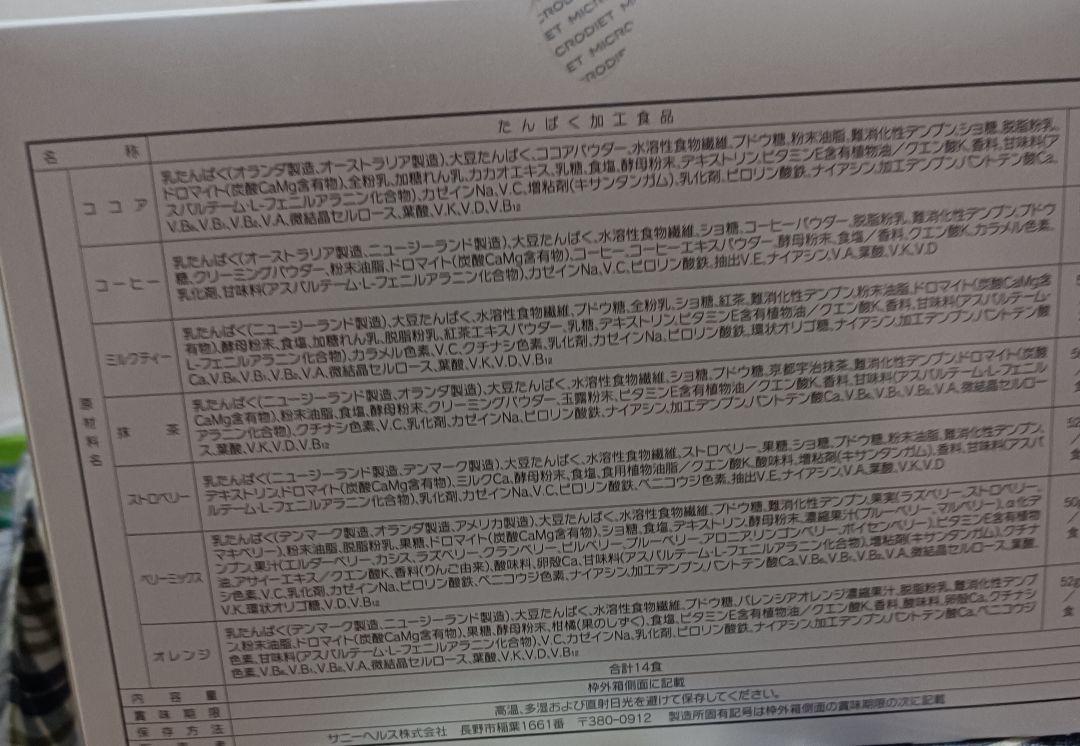 CRODIET MICRO
ET MICRO
CRODIET M
ET MICRO
CRODIE
名 称
たんぱく加工食品
原材料名
ココア
乳たんぱく(オランダ製造、オーストラリア製造)、大豆たんぱく、ココアパウダー、水溶性食物繊維、ブドウ糖、粉末油脂、難消化性デンプン、ショ糖、脱脂粉乳、
ドロマイト(炭酸CaMg含有物)、全粉乳、加糖れん乳、カカオエキス、乳糖、食塩、酵母粉末、デキストリン、ビタミンE含有植物油／クエン酸K、香料、甘味料(ア
スパルテーム・L-フェニルアラニン化合物)、カゼインNa、V.C、増粘剤(キサンタンガム)、乳化剤、ピロリン酸鉄、ナイアシン、加工デンプン、パントテン酸Ca、
V.B₆、V.B₁、V.B₂、V.A、微結晶セルロース、葉酸、V.K、V.D、V.B₁₂
コーヒー
乳たんぱく(オーストラリア製造、ニュージーランド製造)、大豆たんぱく、水溶性食物繊維、ショ糖、コーヒーパウダー、脱脂粉乳、難消化性デンプン、ブドウ
糖、クリーミングパウダー、粉末油脂、ドロマイト(炭酸CaMg含有物)、コーヒー、コーヒーエキスパウダー、酵母粉末、食塩／香料、クエン酸K、カラメル色素、
乳化剤、甘味料(アスパルテーム・L-フェニルアラニン化合物)、カゼインNa、V.C、ピロリン酸鉄、抽出V.E、ナイアシン、V.A、葉酸、V.K、V.D
ミルクティー
乳たんぱく(ニュージーランド製造)、大豆たんぱく、水溶性食物繊維、ブドウ糖、全粉乳、ショ糖、紅茶、難消化性デンプン、粉末油脂、ドロマイト(炭酸CaMg含
有物)、酵母粉末、食塩、加糖れん乳、脱脂粉乳、紅茶エキスパウダー、乳糖、デキストリン、ビタミンE含有植物油／クエン酸K、香料、甘味料(アスパルテーム・
L-フェニルアラニン化合物)、カラメル色素、V.C、クチナシ色素、乳化剤、カゼインNa、ピロリン酸鉄、環状オリゴ糖、ナイアシン、加工デンプン、パントテン酸
Ca、V.B₆、V.B₁、V.B₂、V.A、微結晶セルロース、葉酸、V.K、V.D、V.B₁₂
抹 茶
乳たんぱく(ニュージーランド製造、オランダ製造)、大豆たんぱく、水溶性食物繊維、ショ糖、ブドウ糖、京都宇治抹茶、難消化性デンプン、ドロマイト(炭酸
CaMg含有物)、粉末油脂、食塩、酵母粉末、クリーミングパウダー、玉露粉末、ビタミンE含有植物油／クエン酸K、香料、甘味料(アスパルテーム・L-フェニル
アラニン化合物)、クチナシ色素、V.C、乳化剤、カゼインNa、ピロリン酸鉄、ナイアシン、加工デンプン、パントテン酸Ca、V.B₆、V.B₁、V.B₂、V.A、微結晶セルロー
ス、葉酸、V.K、V.D、V.B₁₂
ストロベリー
乳たんぱく(ニュージーランド製造、デンマーク製造)、大豆たんぱく、水溶性食物繊維、ストロベリー、果糖、ショ糖、ブドウ糖、粉末油脂、難消化性デンプン、
デキストリン、ドロマイト(炭酸CaMg含有物)、ミルクCa、酵母粉末、食塩、食用植物油脂／クエン酸K、酸味料、増粘剤(キサンタンガム)、香料、甘味料(アスパ
ルテーム・L-フェニルアラニン化合物)、乳化剤、カゼインNa、V.C、ピロリン酸鉄、ベニコウジ色素、抽出V.E、ナイアシン、V.A、葉酸、V.K、V.D
52
／
食
ベリーミックス
乳たんぱく(デンマーク製造、オランダ製造、アメリカ製造)、大豆たんぱく、水溶性食物繊維、ブドウ糖、難消化性デンプン、果実(ラズベリー、ストロベリー、
マキベリー)、粉末油脂、脱脂粉乳、果糖、ドロマイト(炭酸CaMg含有物)、ショ糖、食塩、デキストリン、酵母粉末、濃縮果汁(ブルーベリー、マルベリー)、α化デ
ンプン、果汁(エルダーベリー、カシス、ラズベリー、クランベリー、ビルベリー、ブルーベリー、アロニア、リンゴンベリー、ボイセンベリー)、ビタミンE含有植物
油、アサイーエキス／クエン酸K、香料(りんご由来)、酸味料、卵殻Ca、甘味料(アスパルテーム・L-フェニルアラニン化合物)、増粘剤(キサンタンガム)、クチナ
シ色素、V.C、乳化剤、カゼインNa、ピロリン酸鉄、ベニコウジ色素、ナイアシン、加工デンプン、パントテン酸Ca、V.B₆、V.B₁、V.B₂、V.A、微結晶セルロース、葉酸、
V.K、環状オリゴ糖、V.D、V.B₁₂
50g
／
食
オレンジ
乳たんぱく(デンマーク製造、ニュージーランド製造)、大豆たんぱく、水溶性食物繊維、ブドウ糖、バレンシアオレンジ濃縮果汁、脱脂粉乳、難消化性デンプ
ン、粉末油脂、ドロマイト(炭酸CaMg含有物)、果糖、酵母粉末、柑橘(果のしずく)、食塩、ビタミンE含有植物油／クエン酸K、香料、酸味料、卵殻Ca、クチナシ
色素、甘味料(アスパルテーム・L-フェニルアラニン化合物)、V.C、カゼインNa、乳化剤、ピロリン酸鉄、ナイアシン、加工デンプン、パントテン酸Ca、ベニコウジ
色素、V.B₆、V.B₁、V.B₂、V.A、微結晶セルロース、葉酸、V.K、V.D、V.B₁₂
52g
／
食
内 容 量
合計14食
賞 味 期 限
枠外箱側面に記載
保 存 方 法
高温、多湿および直射日光を避けて保存してください。
サニーヘルス株式会社 長野市稲葉1661番 〒380-0912 製造所固有記号は枠外箱側面の賞味期限の次に記載